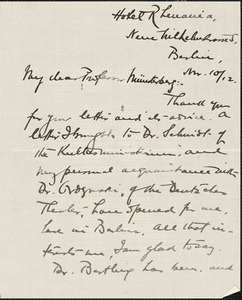 Hotel Rhenania,
Neue Wilhelmstrasse,
Berlin,
Nov. 10/12.
My dear Professor Münsterberg:
Thank you
for your letter and its advice. A
letter I brought to Dr. Schmidt of
the Kultusministerium, and
my personal acquaintance with
Dr. Ordynski, of the Deutsches
Theater, have opened for me,
here in Berlin, all that in-
terests me, I am glad to say.
Dr. Barthey has been, and